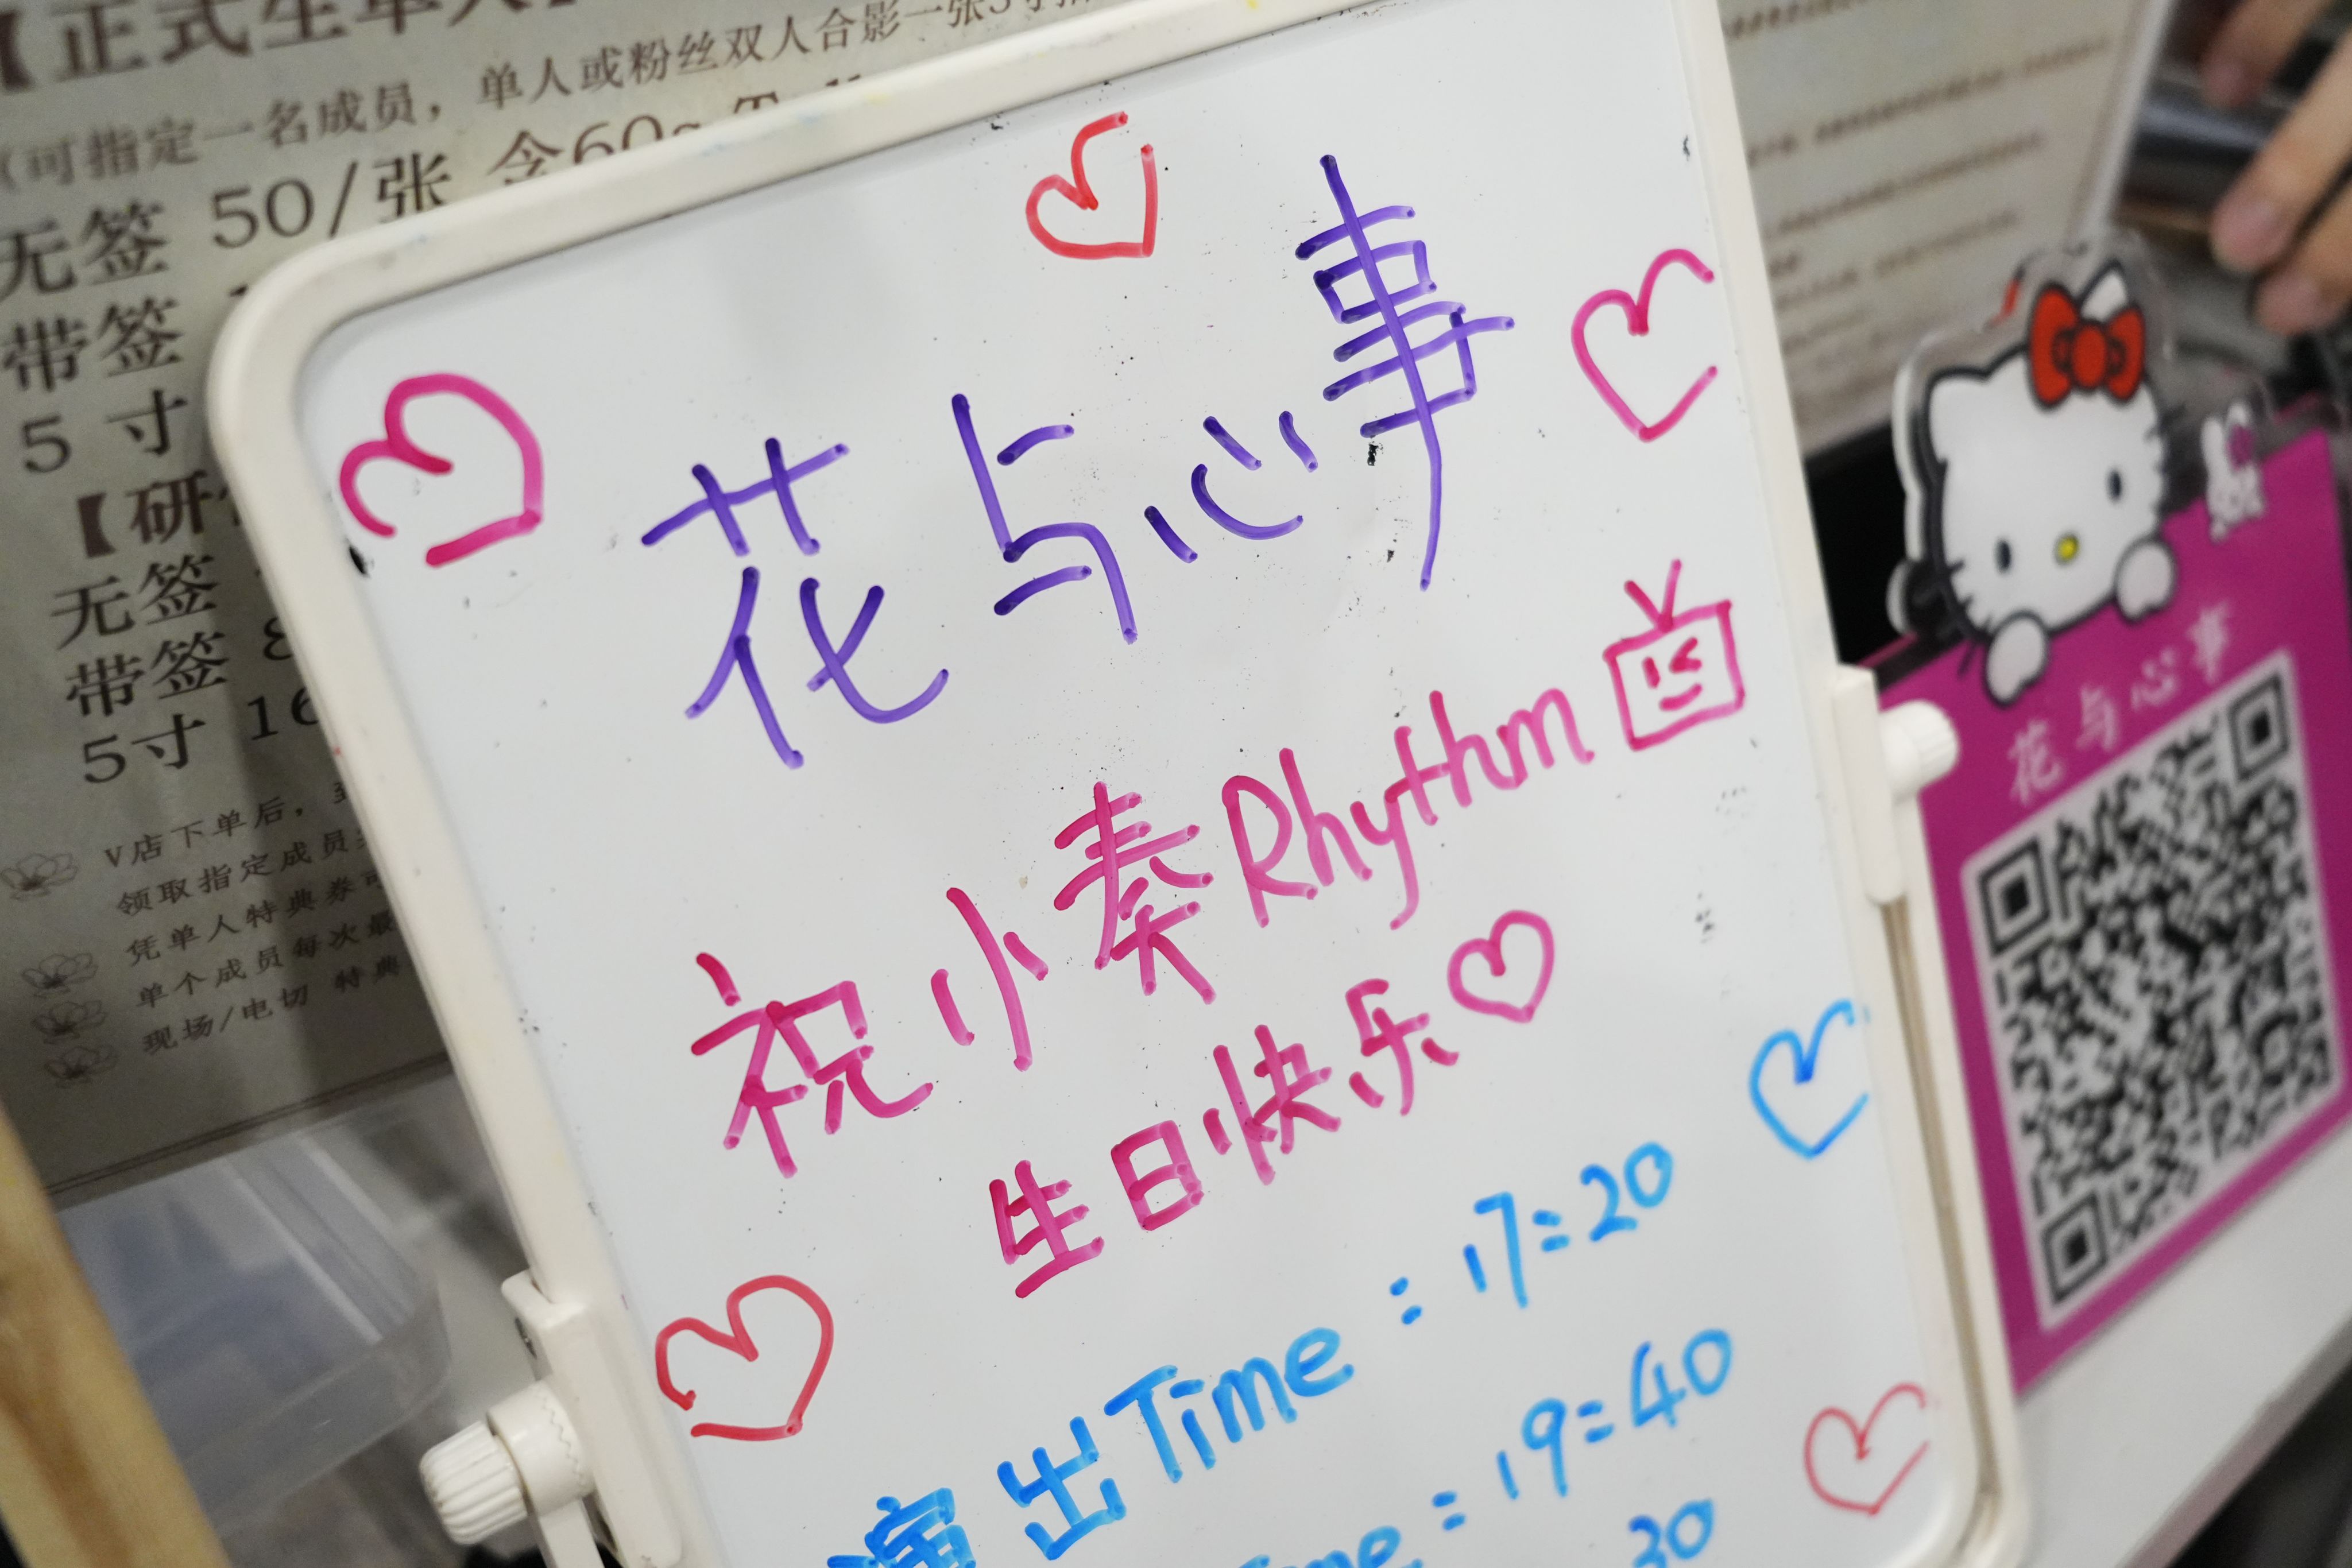 【正式生单人】
（可指定一名成员，单人或粉丝双人合影一张5寸
无签 50/张 含60s
带签
5 寸
【研
无签
带签 8
5寸 16
V店下单后，
领取指定成员
凭单人特典券可
单个成员每次最
现场/电切 特典
花与心事
祝小奏Rhythm
生日快乐
演出Time：17:20
ime：19:40
30
花与心事